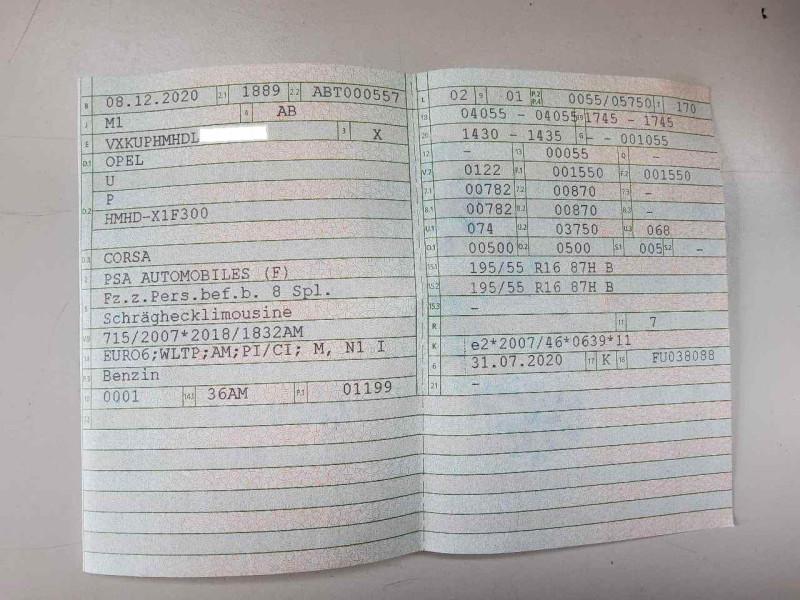 B 08.12.2020 2.1 1889 2.2 ABT000557
J M1 4 AB
E VXKUPHMHDL 3 X
D.1 OPEL
U
D.2 P
HMHD-X1F300
D.3 CORSA
2 PSA AUTOMOBILES (F)
Fz.z.Pers.bef.b. 8 Spl.
5 Schräghecklimousine
V.9 715/2007*2018/1832AM
14 EURO6;WLTP;AM;PI/CI; M, N1 I
P.3 Benzin
10 0001 14.1 36AM P.1 01199
22
L 02 9 01 P.2 P.4 0055/05750 T 170
18 04055 - 04055 19 1745 - 1745
20 1430 - 1435 G - - 001055
12 - 13 00055 Q -
V.7 0122 F.1 001550 F.2 001550
7.1 00782 7.2 00870 7.3 -
8.1 00782 8.2 00870 8.3 -
U.1 074 U.2 03750 U.3 068
O.1 00500 O.2 0500 S.1 005 S.2 -
15.1 195/55 R16 87H B
15.2 195/55 R16 87H B
15.3 -
R 11 7
K e2*2007/46*0639*11
6 31.07.2020 17 K 16 FU038088
21 -